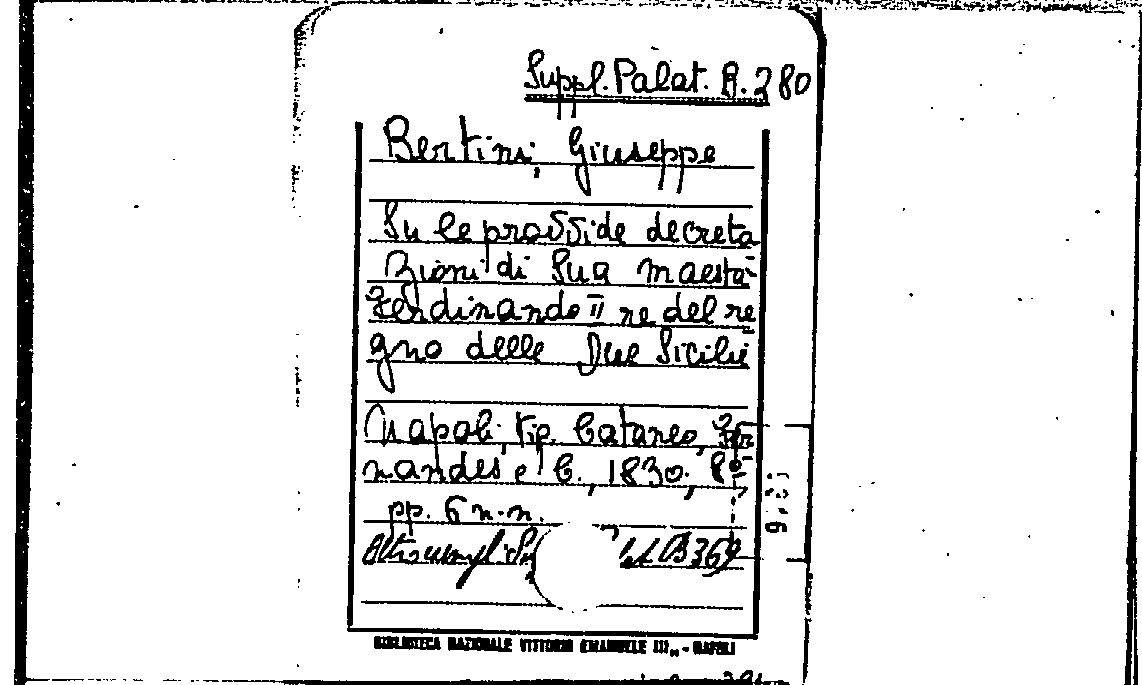 Suppl. Palat. B. 280
Bertini, Giuseppe
Su le provvide decreta
zioni di Sua Maestà
Ferdinando II re del re
gno delle Due Sicilie
Napoli, tip. Cataneo, Fer
nandes e C., 1830, 8º,
pp. 6 n.n.
B 369
BIBLIOTECA NAZIONALE VITTORIO EMANUELE III„ - NAPOLI